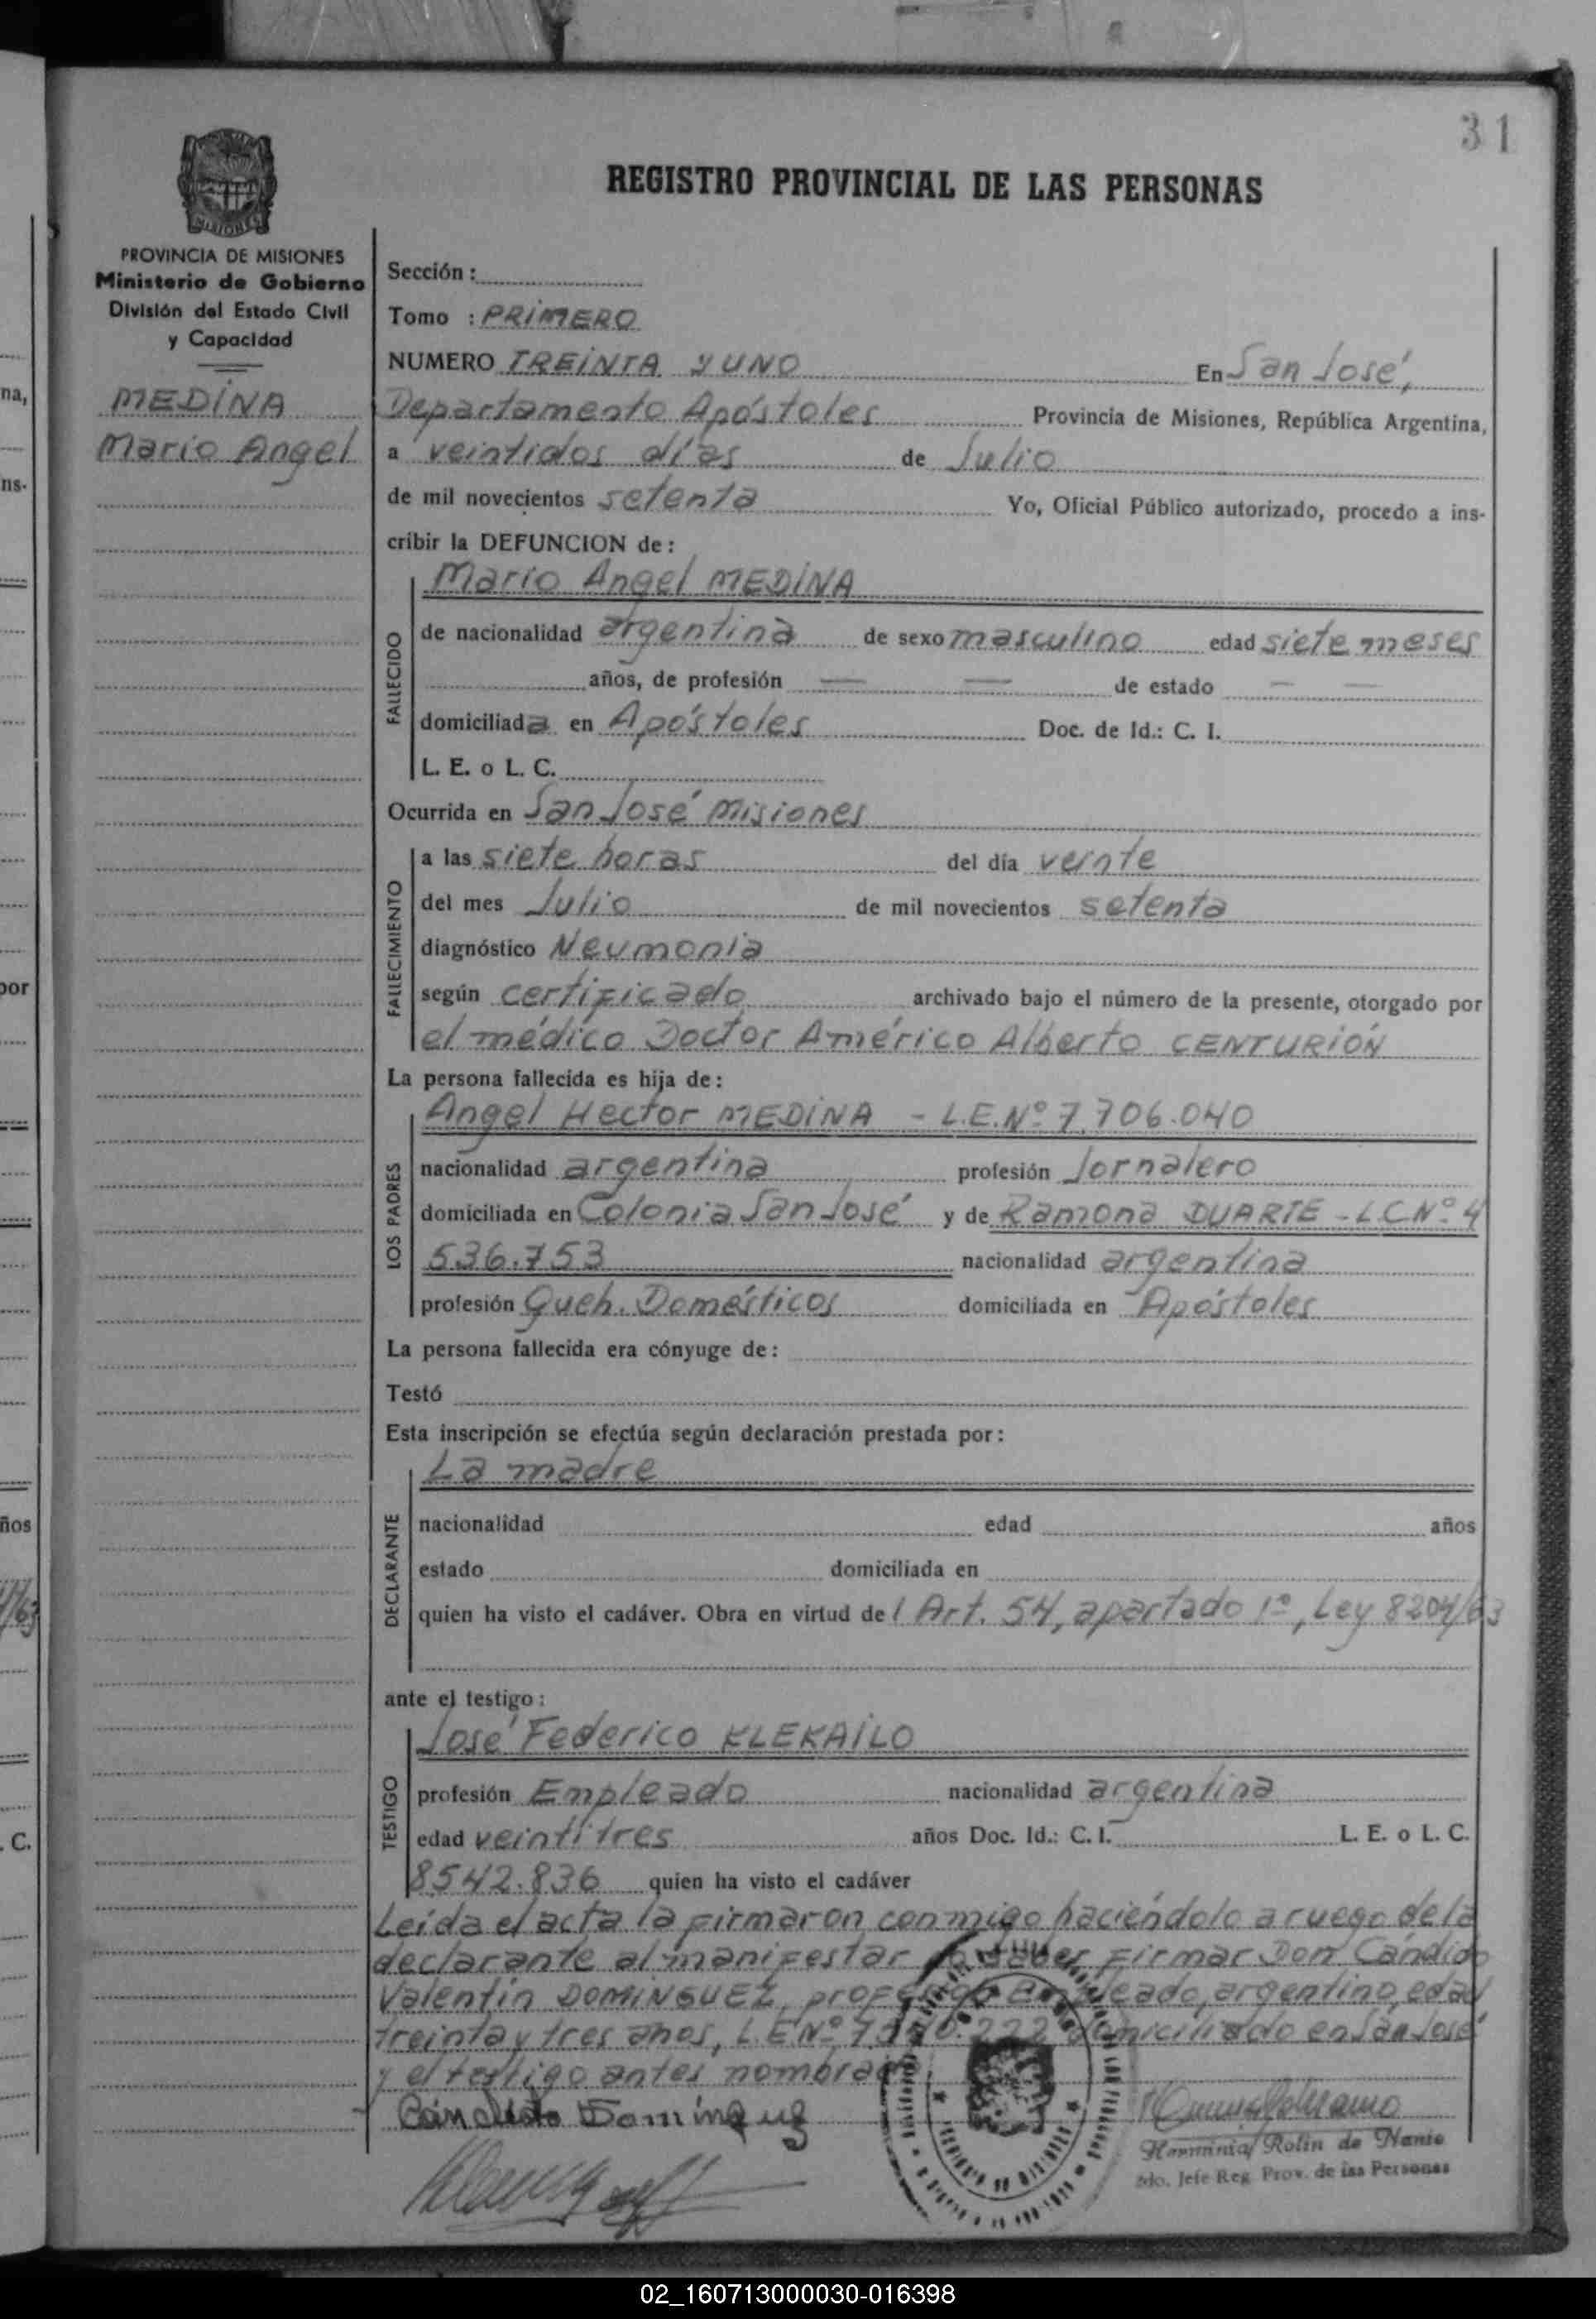 31
REGISTRO PROVINCIAL DE LAS PERSONAS
MISIONES
PROVINCIA DE MISIONES
Ministerio de Gobierno
División del Estado Civil
y Capacidad
MEDINA
Mario Angel
Sección :
Tomo : PRIMERO
NUMERO TREINTA Y UNO En San José,
Departamento Apóstoles Provincia de Misiones, República Argentina,
a veintidos días de Julio
de mil novecientos setenta Yo, Oficial Público autorizado, procedo a ins-
cribir la DEFUNCION de :
FALLECIDO
Mario Angel MEDINA
de nacionalidad argentina de sexo masculino edad siete meses
años, de profesión — — de estado — —
domiciliada en Apóstoles Doc. de Id.: C. I.
L. E. o L. C.
Ocurrida en San José Misiones
FALLECIMIENTO
a las siete horas del día veinte
del mes Julio de mil novecientos setenta
diagnóstico Neumonia
según certificado archivado bajo el número de la presente, otorgado por
el médico Doctor Américo Alberto CENTURIÓN
La persona fallecida es hija de :
LOS PADRES
Angel Hector MEDINA - L.E.Nº 7.706.040
nacionalidad argentina profesión Jornalero
domiciliada en Colonia San José y de Ramona DUARTE - L.C Nº 4
536.753 nacionalidad argentina
profesión Queh. Domésticos domiciliada en Apóstoles
La persona fallecida era cónyuge de :
Testó
Esta inscripción se efectúa según declaración prestada por :
DECLARANTE
La madre
nacionalidad edad años
estado domiciliada en
quien ha visto el cadáver. Obra en virtud del Art. 54, apartado 1º, Ley 8204/63
ante el testigo :
TESTIGO
José Federico KLEKAILO
profesión Empleado nacionalidad argentina
edad veintitres años Doc. Id.: C. I. L. E. o L. C.
8542.836 quien ha visto el cadáver
Leída el acta la firmaron conmigo haciéndolo a ruego de la
declarante al manifestar no saber firmar Don Cándido
Valentín DOMINGUEZ, profesión Empleado, argentino, edad
treinta y tres años, L.E.Nº domiciliado en San José
y el testigo antes nombrado
Cándido Dominguz
Herminia Rolin de Nanio
Jefe Reg. Prov. de las Personas
na,
ns-
por
ños
/63
. C.
02_160713000030-016398